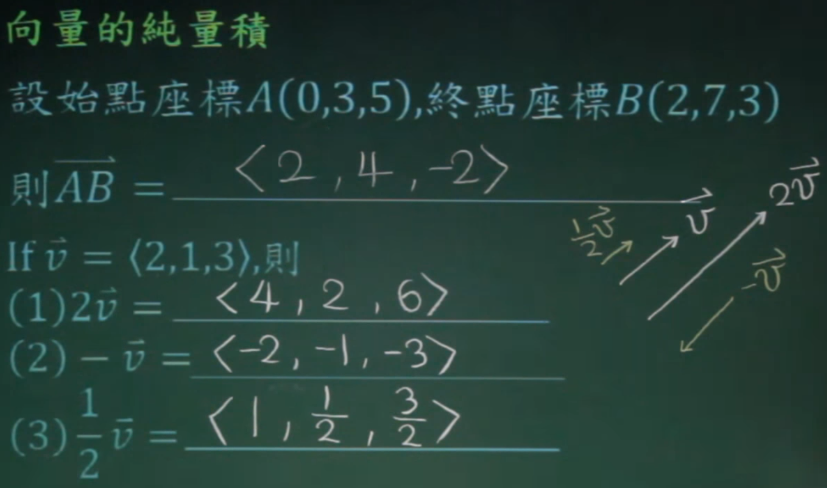 向量的純量積
設始點座標A(0,3,5),終點座標B(2,7,3)
則\overrightarrow{AB} = ⟨2 , 4 , -2⟩
If \vec{v} = ⟨2,1,3⟩,則
(1)2\vec{v} = ⟨4 , 2 , 6⟩
(2) − \vec{v} = ⟨-2 , -1 , -3⟩
(3)\frac{1}{2}\vec{v} = ⟨1 , \frac{1}{2} , \frac{3}{2}⟩
\frac{1}{2}\vec{v}
\vec{v}
2\vec{v}
-\vec{v}